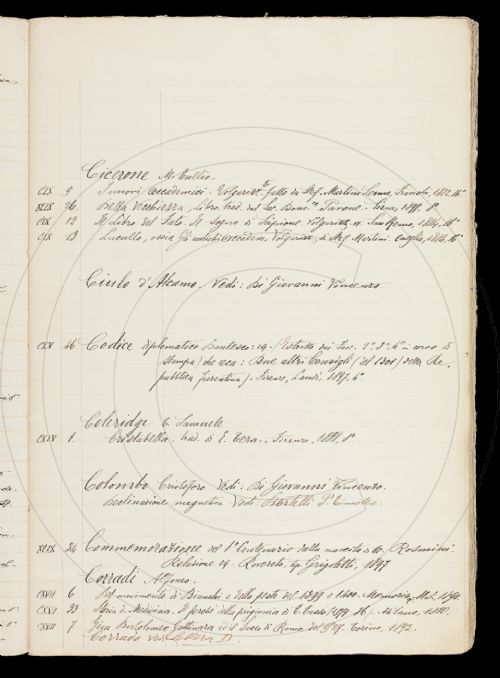 Cicerone M. Tullio
CIX 9 Lavori Accademici. Volgarizz.te fatto da Stef. Martini 1882. 16°
XLIX 36 Della Vecchiezza, Libro trad. dal Sac. Siena, 1897. 8°
CIX 12 Il Libro del Fato. Il Sogno di Scipione. Volgarizz. Sanremo, 1884. 16°
CIX 13 Lucullo, ossia Gli antichi Accademici, Volgarizz. di Stef. Martini. Oneglia, 1884. 16°
Ciulo d'Alcamo, Vedi: Di Giovanni Vincenzo
CXV 46 Codice diplomatico Dantesco: (Estratto dei fasc. 2° 3° 4° in corso di
stampa) che reca: Due altri Consigli (del 1301) della Re-
pubblica fiorentina). Firenze, Landi, 1897. 4°
Coleridge C. Samuele
CXIV 1. Cristabella. trad. di E. Teza. Firenze, 1888, 8°
Colombo Cristoforo Vedi: Di Giovanni Vincenzo.
Declinazione magnetica Vedi Bertelli P. Timoteo.
XLIX 34 Commemorazione del 1° Centenario dalla nascita di A. Rosmini.
Relazione Rovereto, tip. Grigoletti, 1897
Corradi Alfonso.
6 Bianchi e della peste del 1399 e 1400. Memoria, Mil. 1891.
33 Storia di Medicina. Le prigionia di T. Tasso (1579 86). Milano, 1880.
7 Gian Bartolomeo Gattinara ed il Sacco di Roma del 1527. Torino, 1892.
Corrado Vedi